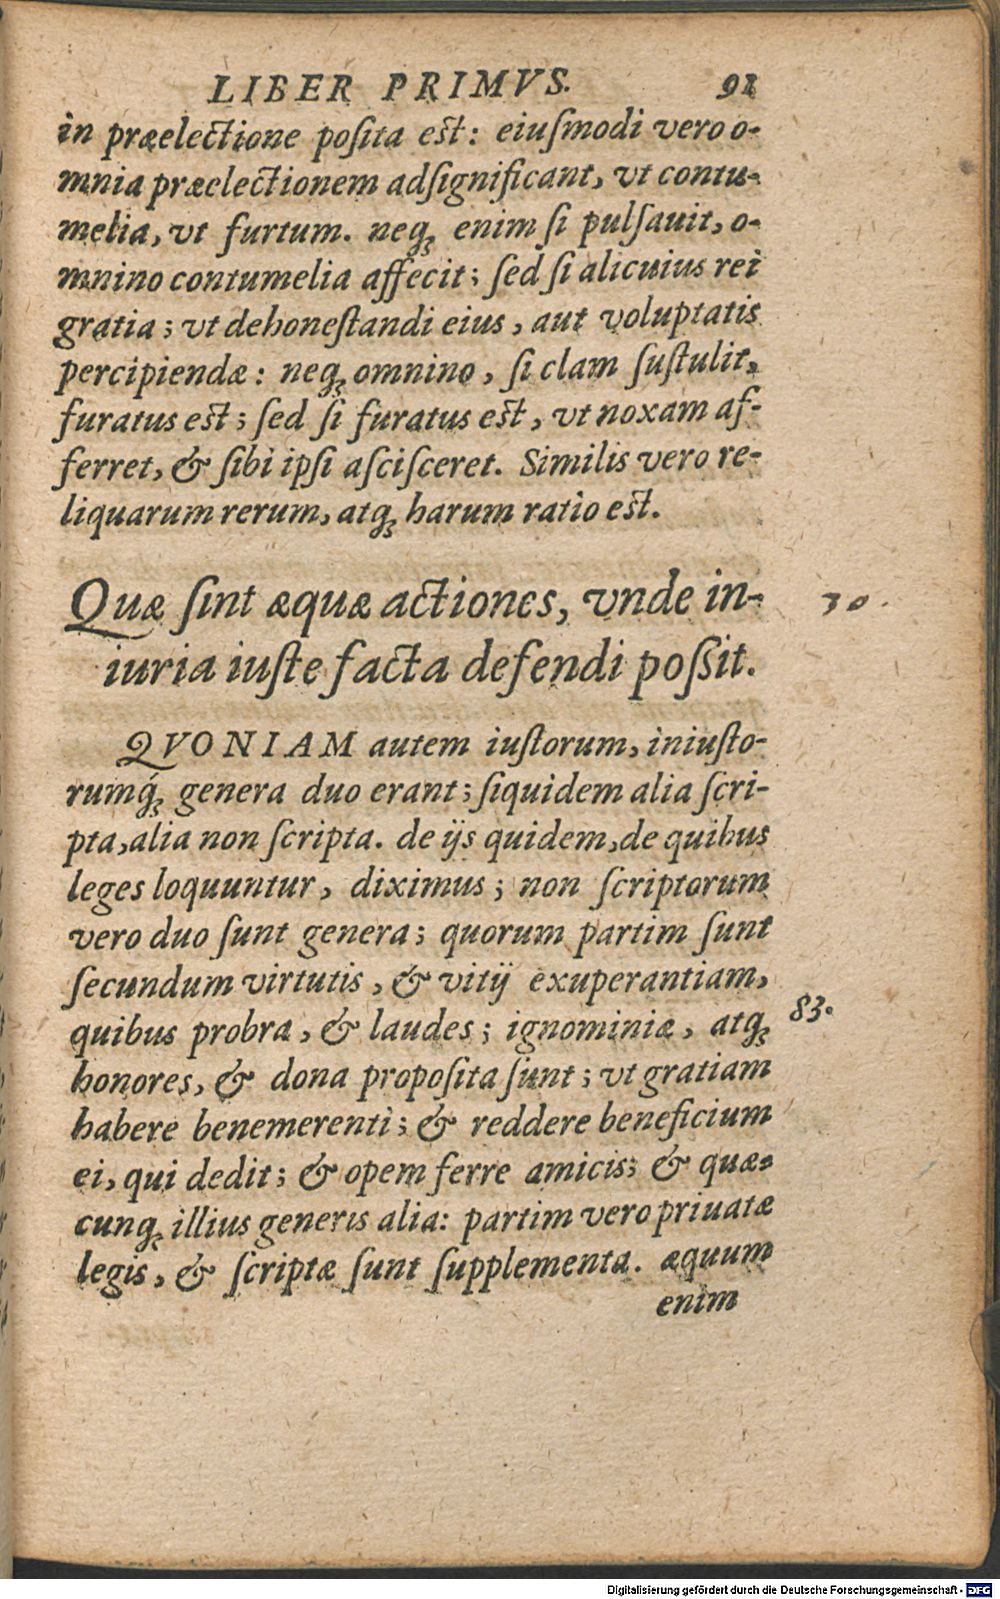 LIBER PRIMVS. 91
in prælectione poſita eſt: eiuſmodi vero o-
mnia prælectionem adſignificant, vt contu-
melia, vt furtum. neqꝫ enim ſi pulſauit, o-
mnino contumelia affecit; ſed ſi alicuius rei
gratia; vt dehoneſtandi eius, aut voluptatis
percipiendæ: neqꝫ omnino, ſi clam ſuſtulit,
furatus eſt; ſed ſi furatus eſt, vt noxam af-
ferret, & ſibi ipſi aſciſceret. Similis vero re-
liquarum rerum, atqꝫ harum ratio eſt.
Quæ ſint æquæ actiones, vnde in-
iuria iuſte facta defendi poſsit.
30.
QVONIAM autem iuſtorum, iniuſto-
rumqꝫ́ genera duo erant; ſiquidem alia ſcri-
pta, alia non ſcripta. de ijs quidem, de quibus
leges loquuntur, diximus; non ſcriptorum
vero duo ſunt genera; quorum partim ſunt
ſecundum virtutis, & vitij exuperantiam,
quibus probra, & laudes; ignominiæ, atqꝫ
83.
honores, & dona propoſita ſunt; vt gratiam
habere benemerenti; & reddere beneficium
ei, qui dedit; & opem ferre amicis; & quæ-
cunqꝫ illius generis alia: partim vero priuatæ
legis, & ſcriptæ ſunt ſupplementa. æquum
enim
Digitalisierung gefördert durch die Deutsche Forschungsgemeinschaft - DFG